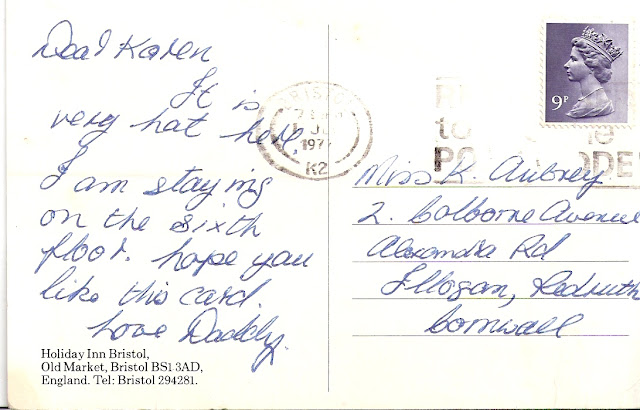 Dear Karen
It is
very hot here.
I am staying
on the sixth
floor. hope you
like this card.
Love Daddy.
Holiday Inn Bristol,
Old Market, Bristol BS1 3AD,
England. Tel: Bristol 294281.
BRISTOL
197
K2
9P
Miss K. Aubrey
2. Colborne Avenue
Alexandra Rd
Illogan, Redruth
Cornwall